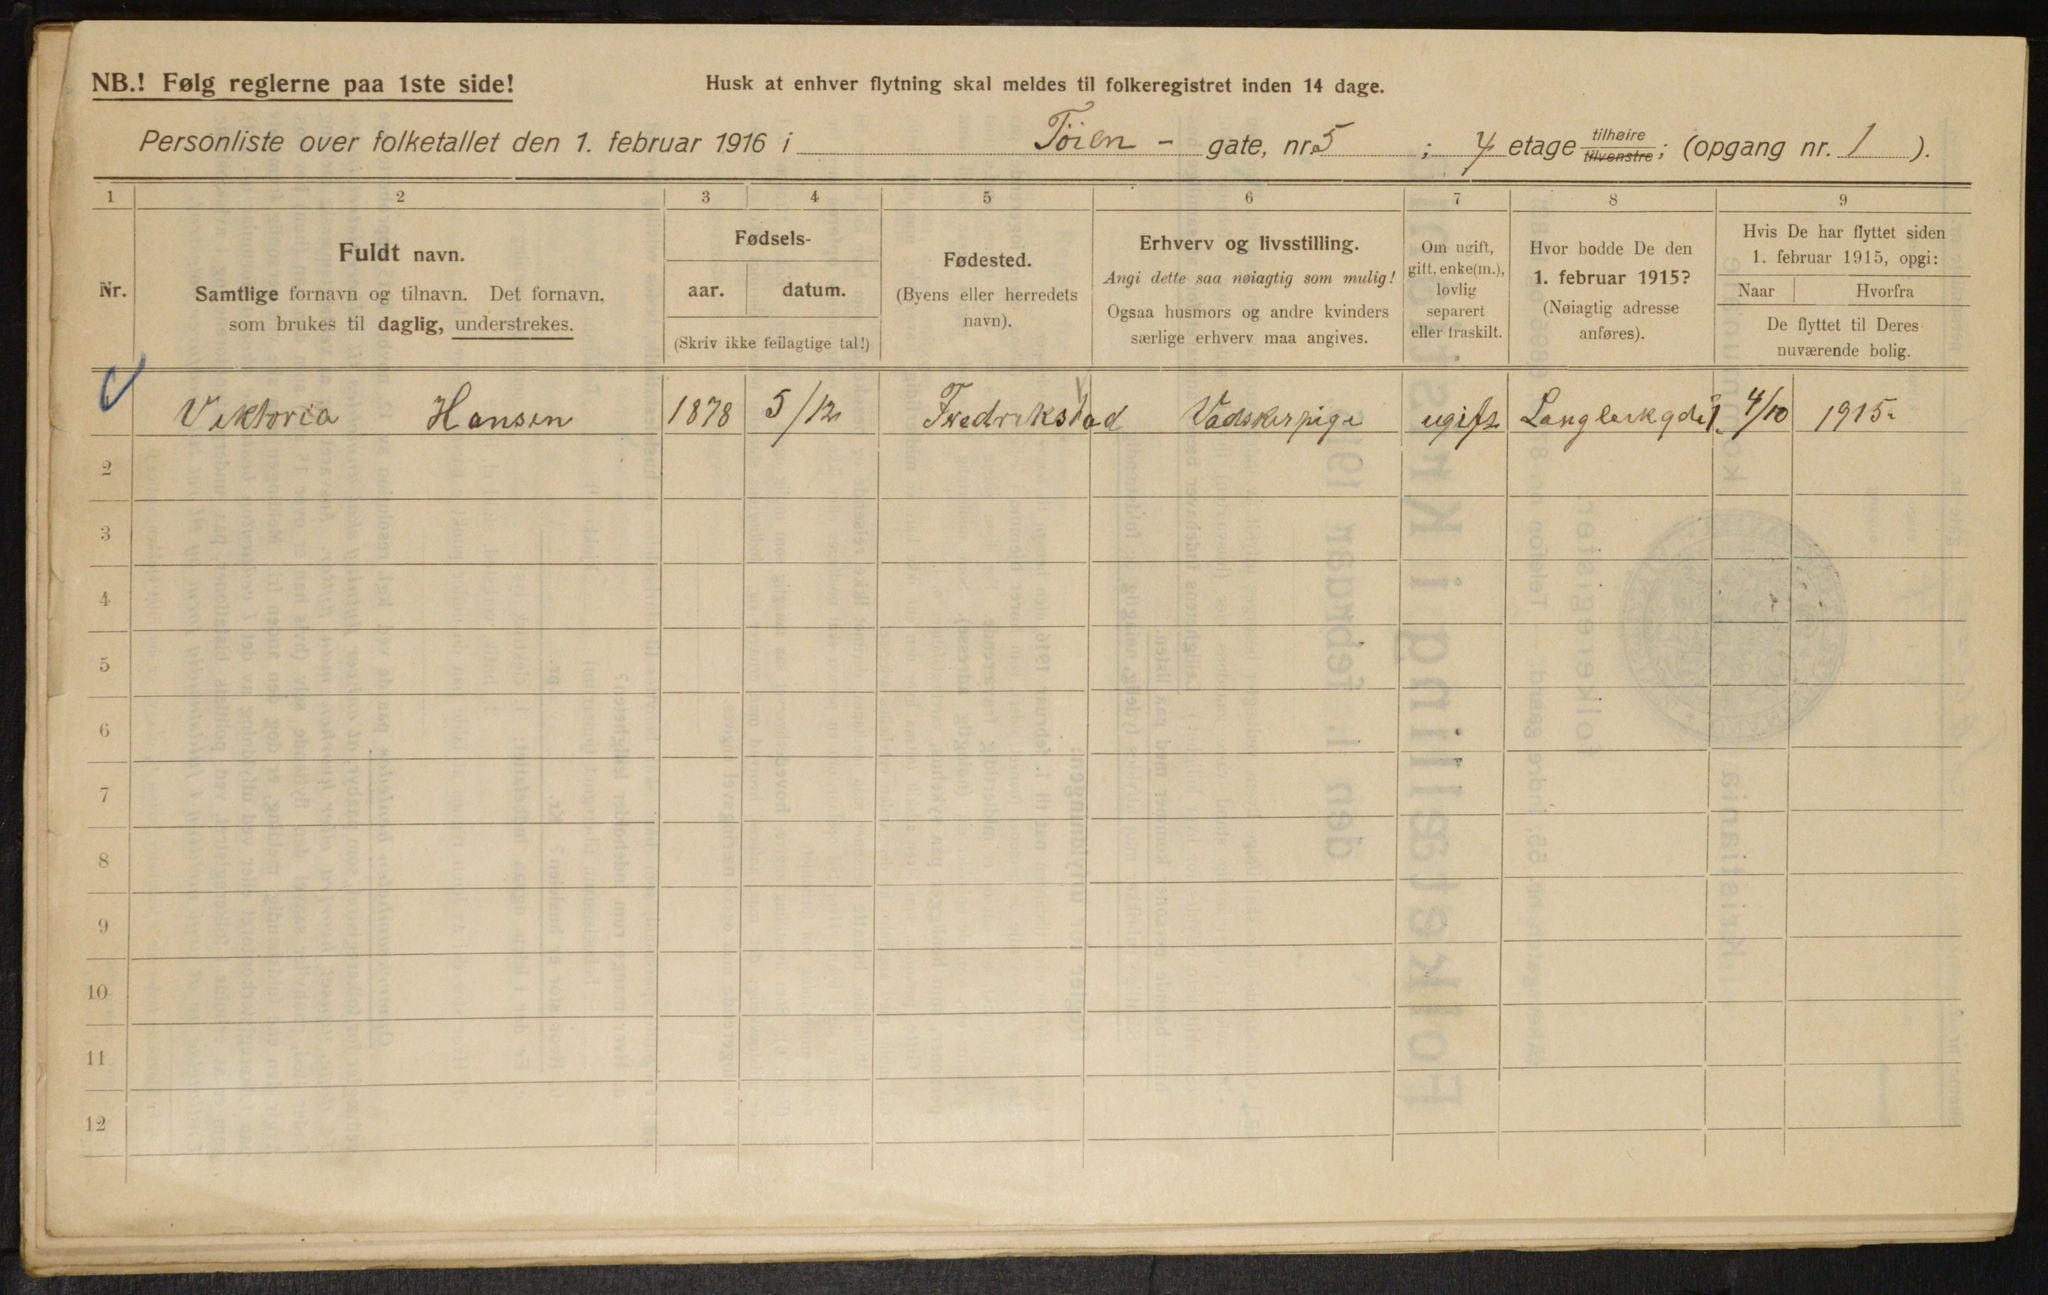 NB.! Følg reglerne paa 1ste side!
Husk at enhver flytning skal meldes til folkeregistret inden 14 dage.
Personliste over folketallet den 1. februar 1916 i Tøien - gate, nr. 5 ; 4 etage tilhøire tilvenstre ; (opgang nr. 1 ).
1 2 3 4 5 6 7 8 9
Nr.
Fuldt navn.
Samtlige fornavn og tilnavn. Det fornavn,
som brukes til daglig, understrekes.
Fødsels-
aar. datum.
(Skriv ikke feilagtige tal!)
Fødested.
(Byens eller herredets
navn).
Erhverv og livsstilling.
Angi dette saa nøiagtig som mulig!
Ogsaa husmors og andre kvinders
særlige erhverv maa angives.
Om ugift,
gift, enke(m.),
lovlig
separert
eller fraskilt.
Hvor bodde De den
1. februar 1915?
(Nøiagtig adresse
anføres).
Hvis De har flyttet siden
1. februar 1915, opgi:
Naar Hvorfra
De flyttet til Deres
nuværende bolig.
Viktoria Hansen 1878 5/12 Fredrikstad Vadskerpige ugift 4/10 1915.
2
3
4
5
6
7
8
9
10
11
12